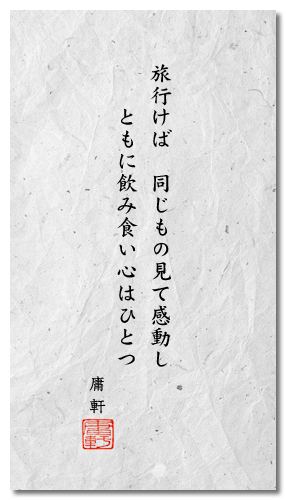 旅行けば　同じもの見て感動し
ともに飲み食い心はひとつ
庸軒
庸軒